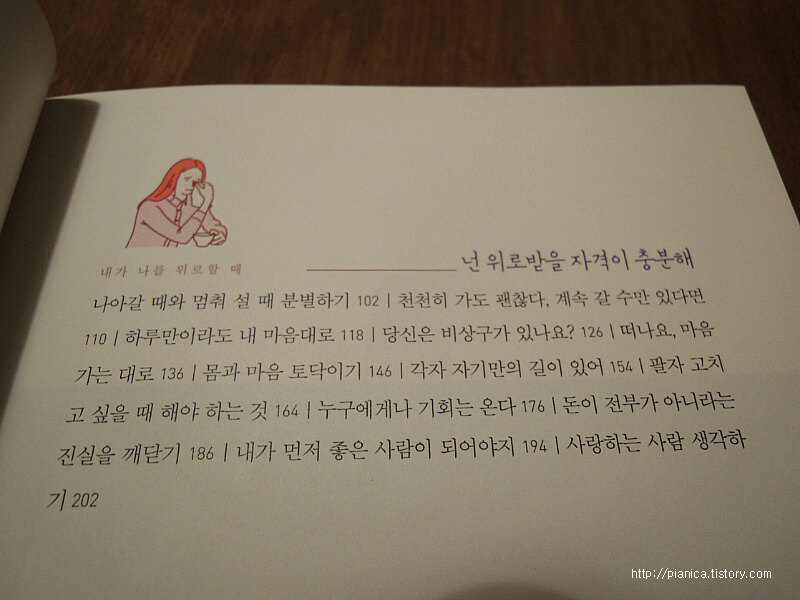 내가 나를 위로할 때
넌 위로받을 자격이 충분해
나아갈 때와 멈춰 설 때 분별하기 102 | 천천히 가도 괜찮다, 계속 갈 수만 있다면
110 | 하루만이라도 내 마음대로 118 | 당신은 비상구가 있나요? 126 | 떠나요, 마음
가는 대로 136 | 몸과 마음 토닥이기 146 | 각자 자기만의 길이 있어 154 | 팔자 고치
고 싶을 때 해야 하는 것 164 | 누구에게나 기회는 온다 176 | 돈이 전부가 아니라는
진실을 깨닫기 186 | 내가 먼저 좋은 사람이 되어야지 194 | 사랑하는 사람 생각하
기 202
http://pianica.tistory.com